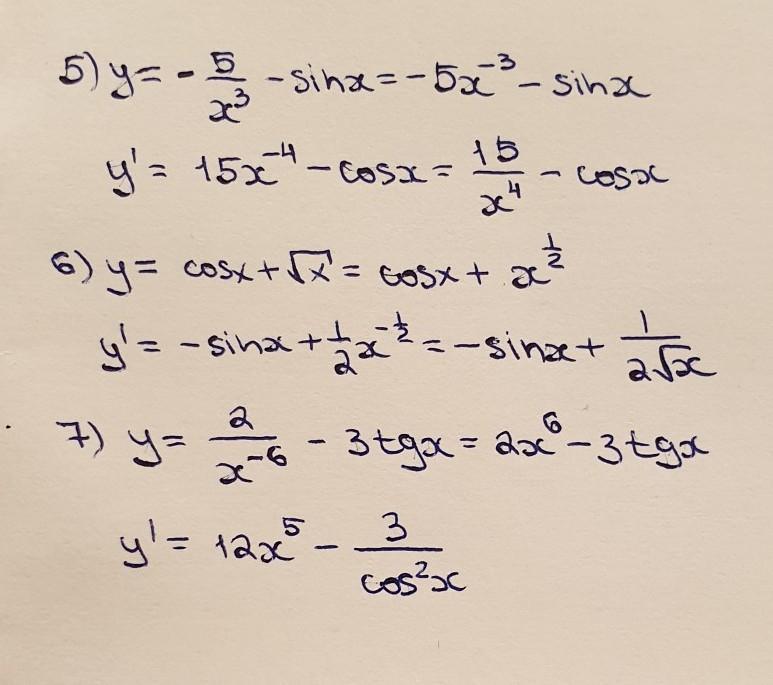 5) y = - 5/x³ - sinx = -5x⁻³ - sinx
y' = 15x⁻⁴ - cosx = 15/x⁴ - cosx
6) y = cosx + √x = cosx + x^(1/2)
y' = -sinx + 1/2 x^(-1/2) = -sinx + 1/(2√x)
7) y = 2/x⁻⁶ - 3tgx = 2x⁶ - 3tgx
y' = 12x⁵ - 3/cos²x